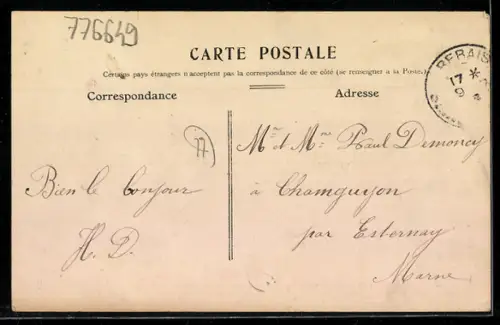 776649
CARTE POSTALE
Certains pays étrangers n'acceptent pas la correspondance de ce côté (se renseigner à la Poste)
Correspondance
Adresse
REBAIS
17 *
9
77
Mr et Mme Paul Demoncy
Bien le bonjour
à Champguyon
H. D.
par Esternay
Marne